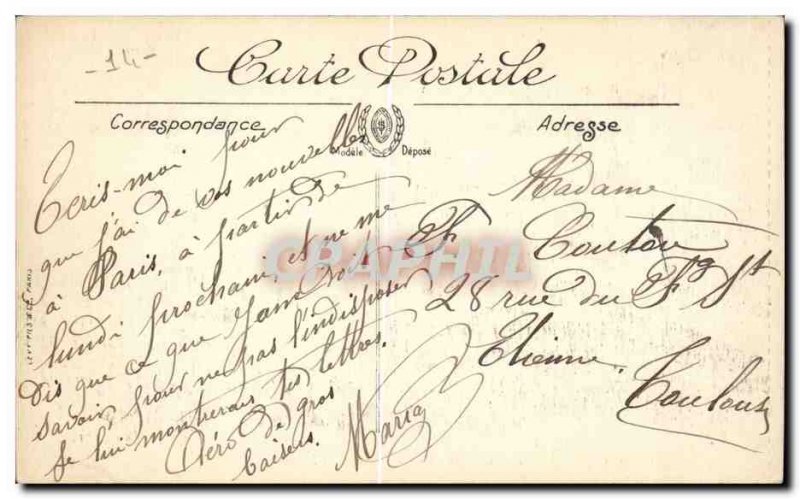 -14-
Carte Postale
Correspondance
Modèle Déposé
Adresse
Ecris-moi pour
que j'ai de vos nouvelles
à Paris, à partir de
lundi prochain, et ne me
dis que ce que
savoir, pour ne pas l'indisposer
Je lui montrerai tes lettres.
de gros
baisers.
Maria
Madame
F. Couton
28 rue du Fg St
Etienne.
Toulouse
LEVY FILS & Cie, PARIS
CPAPHIL